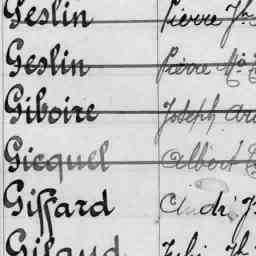 Geslin Pierre Jh
Geslin Pierre M
Giboire Joseph
Gicquel Albert
Giffard André J
Gilaud